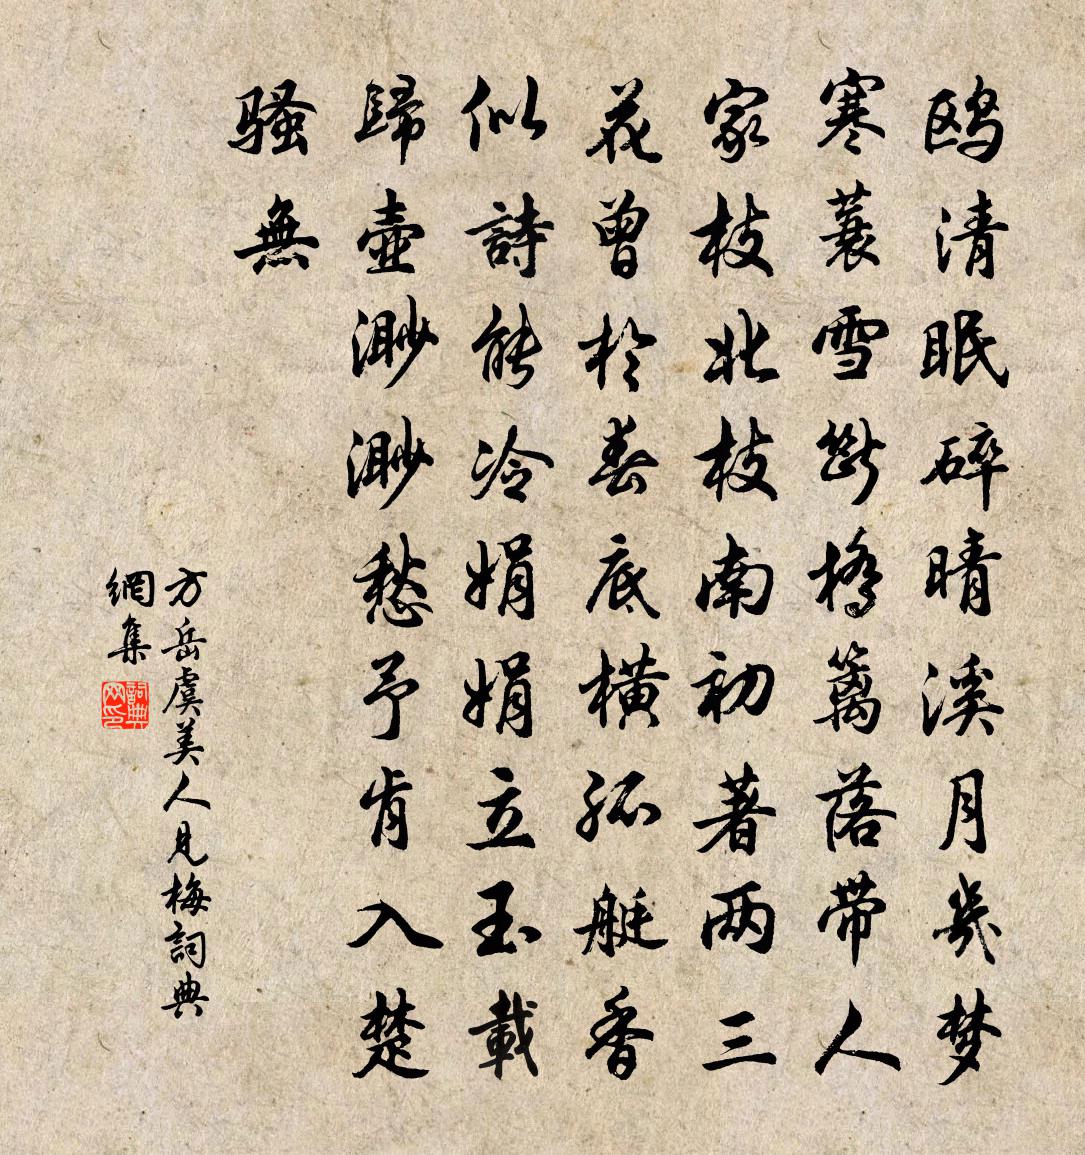 鸥清眠碎晴溪月幾梦
寒蓑雪斷橋篱落带人
家枝北枝南初著两三
花曾於春底横孤艇香
似詩能冷娟娟立玉載
歸壶渺渺愁予肯入楚
骚無
方岳虞美人見梅詞典
網集
詞典网印